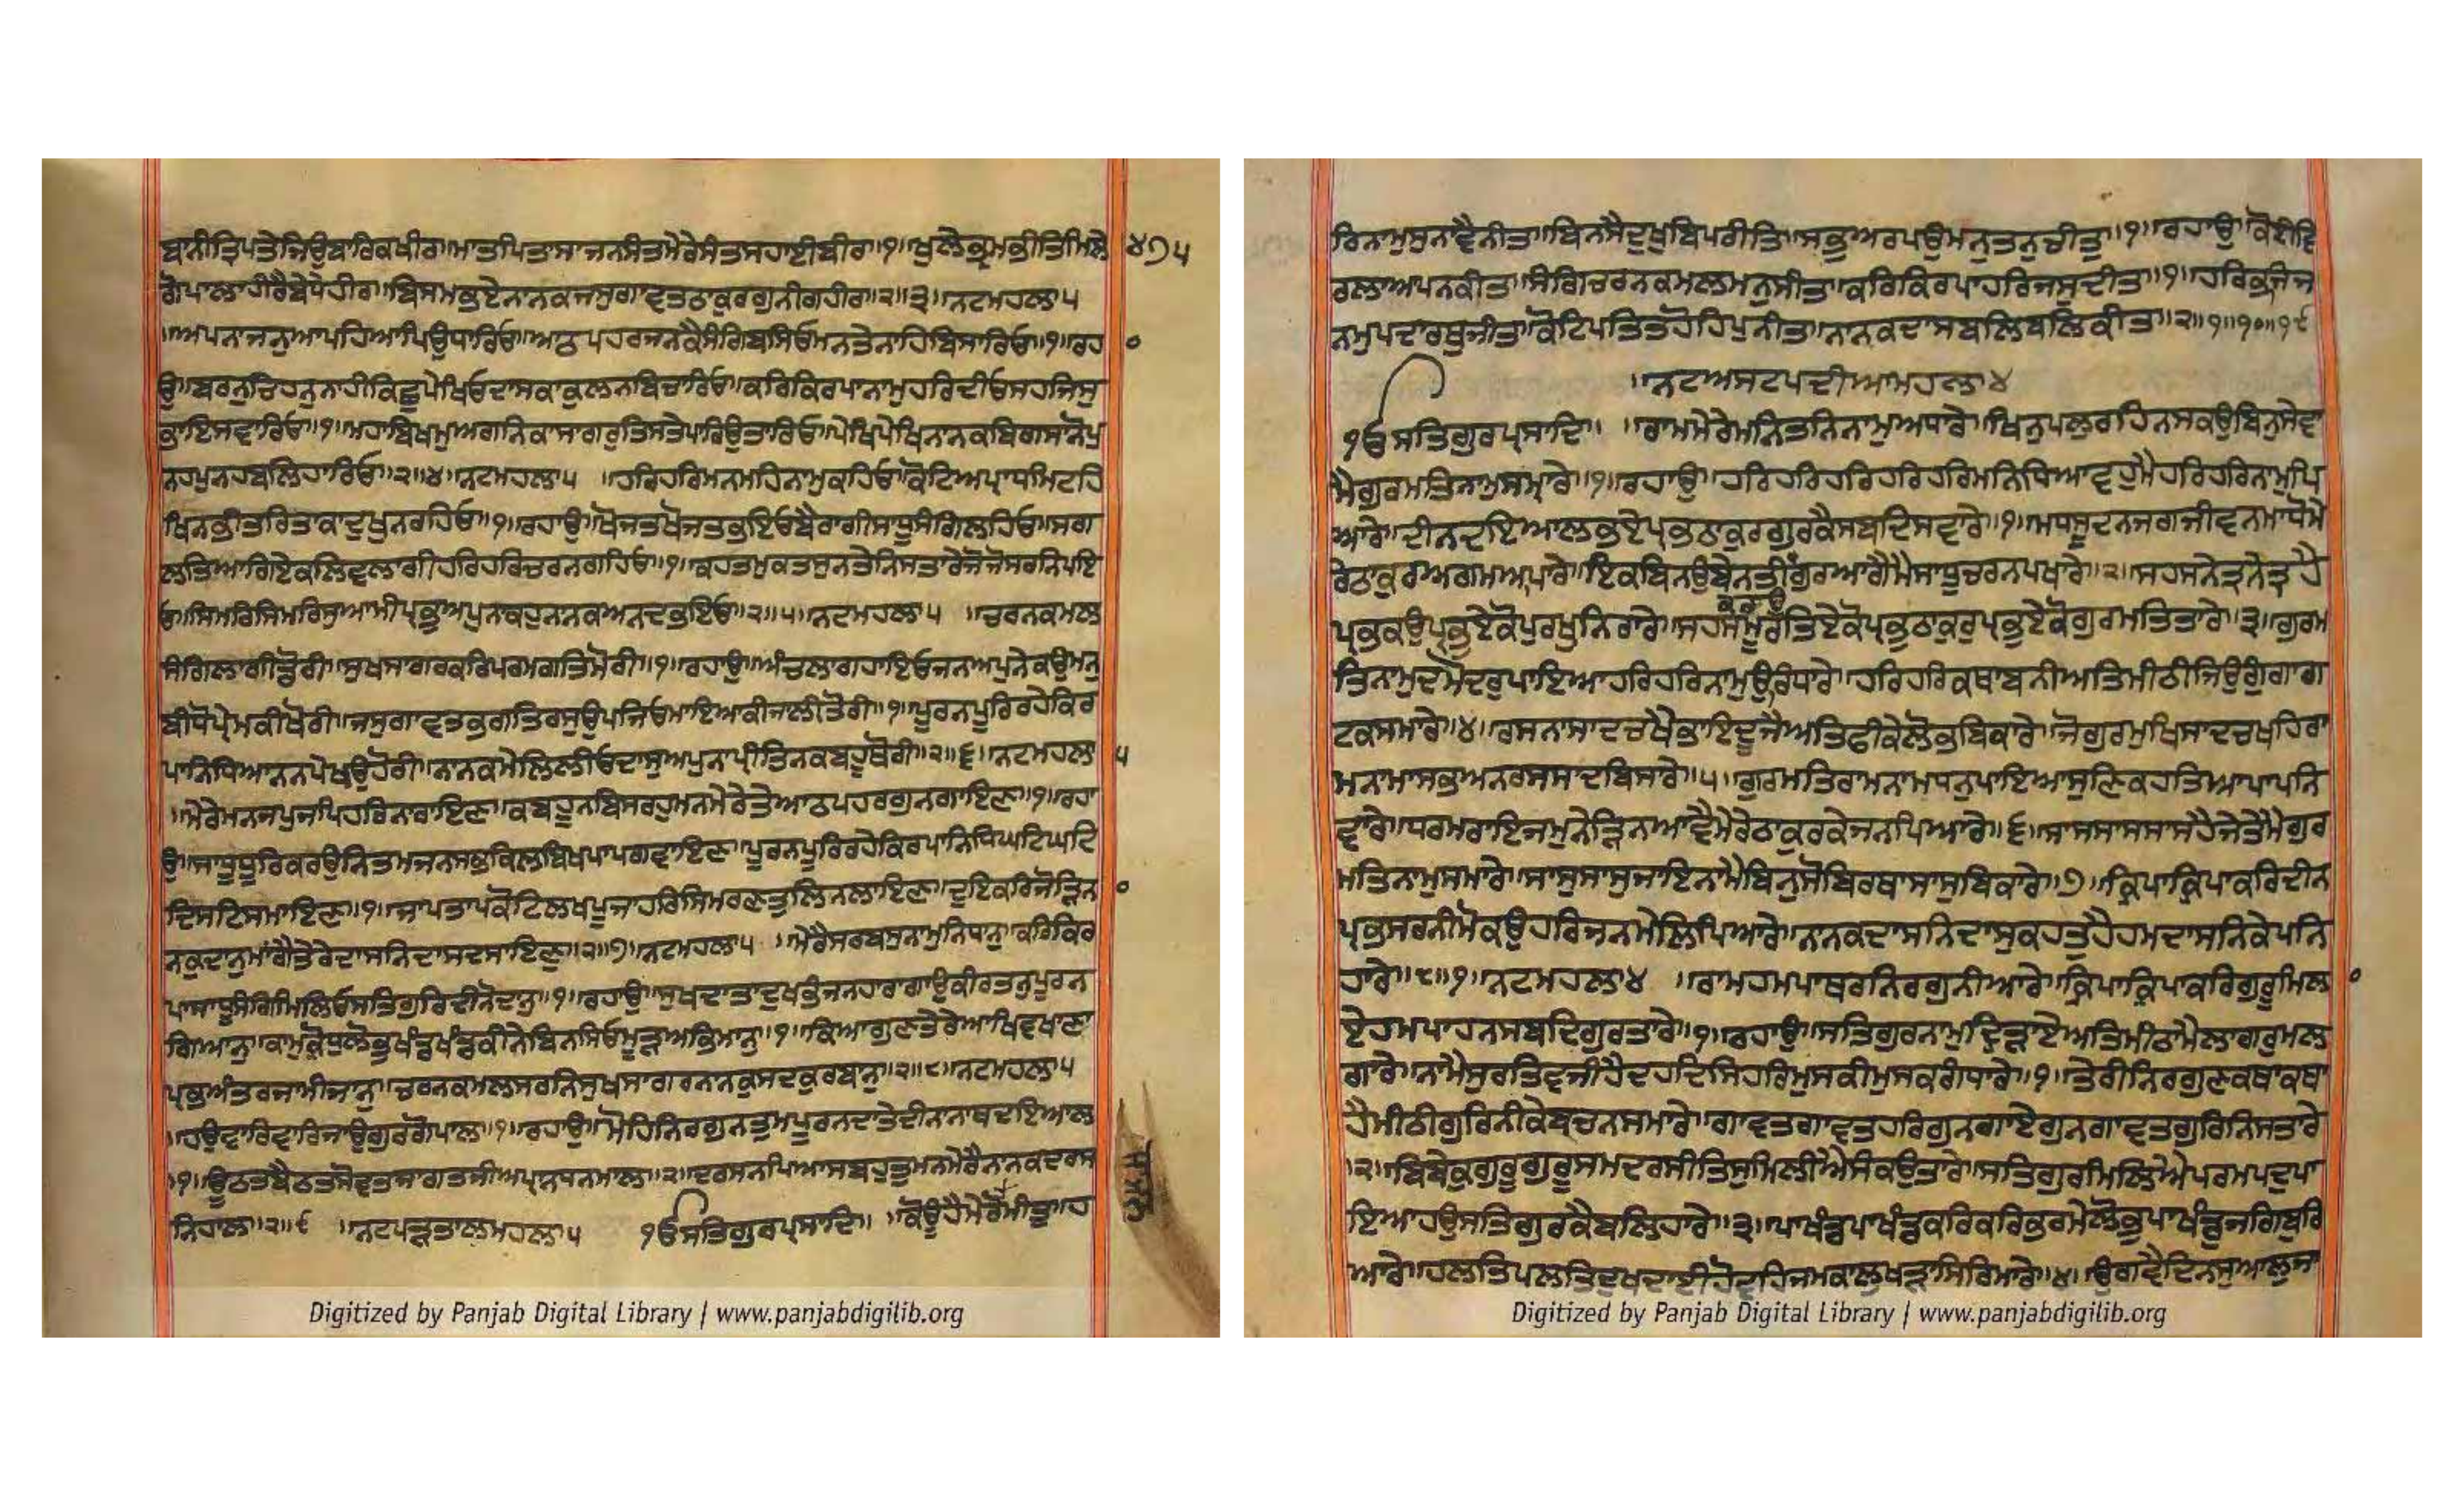 ਬਨੀਤ੍ਰਿਪਤੇਜਿਉਬਾਰਿਕਖੀਰਾ॥ਮਾਤਪਿਤਾਸਾਜਨਸੰਤਮੇਰੇਸੰਤਸਹਾਈਬੀਰਾ॥੧॥ਖੁਲੇਭ੍ਰਮਭੀਤਿਮਿਲੇ ੪੭੫
ਗੋਪਾਲਾਹੀਰੈਬੇਧੇਹੀਰਾ॥ਬਿਸਮਭਏਨਾਨਕਜਸੁਗਾਵਤਠਾਕੁਰਗੁਨੀਗਹੀਰਾ॥੨॥੩॥ਨਟਮਹਲਾ੫
॥ਅਪਨਾਜਨੁਆਪਹਿਆਪਿਉਧਾਰਿਓ॥ਆਠਪਹਰਜਨਕੈਸੰਗਿਬਸਿਓਮਨਤੇਨਾਹਿਬਿਸਾਰਿਓ॥੧॥ਰਹਾ
ਉ॥ਬਰਨੁਚਿਹਨੁਨਾਹੀਕਿਛੁਪੇਖਿਓਦਾਸਕਾਕੁਲਨਬਿਚਾਰਿਓ॥ਕਰਿਕਿਰਪਾਨਾਮੁਹਰਿਦੀਓਸਹਜਿਸੁ
ਭਾਇਸਵਾਰਿਓ॥੧॥ਮਹਾਬਿਖਮੁਅਗਨਿਕਾਸਾਗਰੁਤਿਸਤੇਪਾਰਿਉਤਾਰਿਓ॥ਪੇਖਿਪੇਖਿਨਾਨਕਬਿਗਾਸਨੋਪੁ
ਨਹਪੁਨਹਬਲਿਹਾਰਿਓ॥੨॥੪॥ਨਟਮਹਲਾ੫ ॥ਹਰਿਹਰਿਮਨਮਹਿਨਾਮੁਕਹਿਓ॥ਕੋਟਿਅਪ੍ਰਾਧਮਿਟਹਿ
ਖਿਨਭੀਤਰਿਤਾਕਾਦੁਖੁਨਰਹਿਓ॥੧॥ਰਹਾਉ॥ਖੋਜਤਖੋਜਤਭਇਓਬੈਰਾਗੀਸਾਧੂਸੰਗਿਲਹਿਓ॥ਸਗ
ਲਤਿਆਗਿਏਕਲਿਵਲਾਗੀਹਰਿਹਰਿਚਰਨਗਹਿਓ॥੧॥ਕਹਤਮੁਕਤਸੁਨਤੇਨਿਸਤਾਰੇਜੋਜੋਸਰਨਿਪਇ
ਓ॥ਸਿਮਰਿਸਿਮਰਿਸੁਆਮੀਪ੍ਰਭੁਅਪੁਨਾਕਹੁਨਾਨਕਅਨਦਭਇਓ॥੨॥੫॥ਨਟਮਹਲਾ੫ ॥ਚਰਨਕਮਲ
ਸੰਗਿਲਾਗੀਡੋਰੀ॥ਸੁਖਸਾਗਰਕਰਿਪਰਮਗਤਿਮੋਰੀ॥੧॥ਰਹਾਉ॥ਅੰਚਲਾਗਹਾਇਓਜਨਅਪੁਨੇਕਉਮਨੁ
ਬੀਧੋਪ੍ਰੇਮਕੀਖੋਰੀ॥ਜਸੁਗਾਵਤਭਗਤਿਰਸੁਉਪਜਿਓਮਾਇਆਕੀਜਾਲੀਤੋਰੀ॥੧॥ਪੂਰਨਪੂਰਿਰਹੇਕਿਰ
ਪਾਨਿਧਿਆਨਨਪੇਖਉਹੋਰੀ॥ਨਾਨਕਮੇਲਿਲੀਓਦਾਸੁਅਪੁਨਾਪ੍ਰੀਤਿਨਕਬਹੂਥੋਰੀ॥੨॥੬॥ਨਟਮਹਲਾ ੫
॥ਮੇਰੇਮਨਜਪੁਜਪਿਹਰਿਨਾਰਾਇਣ॥ਕਬਹੂਨਬਿਸਰਹੁਮਨਮੇਰੇਤੇਆਠਪਹਰਗੁਨਗਾਇਣ॥੧॥ਰਹਾ
ਉ॥ਸਾਧੂਧੂਰਿਕਰਉਨਿਤਮਜਨਸਭਕਿਲਬਿਖਪਾਪਗਵਾਇਣ॥ਪੂਰਨਪੂਰਿਰਹੇਕਿਰਪਾਨਿਧਿਘਟਿਘਟਿ
ਦਿਸਟਿਸਮਾਇਣ॥੧॥ਜਾਪਤਾਪਕੋਟਿਲਖਪੂਜਾਹਰਿਸਿਮਰਣਤੁਲਿਨਲਾਇਣ॥ਦੁਇਕਰਿਜੋੜਿਨ
ਨਕੁਦਾਨੁਮਾਂਗੈਤੇਰੇਦਾਸਨਿਦਾਸਦਸਾਇਣੁ॥੨॥੭॥ਨਟਮਹਲਾ੫ ॥ਮੇਰੈਸਰਬਸੁਨਾਮੁਨਿਧਾਨੁ॥ਕਰਿਕਿਰ
ਪਾਸਾਧੂਸੰਗਿਮਿਲਿਓਸਤਿਗੁਰਿਦੀਨੋਦਾਨੁ॥੧॥ਰਹਾਉ॥ਸੁਖਦਾਤਾਦੁਖਭੰਜਨਹਾਰਾਗਾਉਕੀਰਤਨੁਪੂਰਨ
ਗਿਆਨੁ॥ਕਾਮੁਕ੍ਰੋਧੁਲੋਭੁਖੰਡਖੰਡਕੀਨੇਬਿਨਸਿਓਮੂੜਅਭਿਮਾਨੁ॥੧॥ਕਿਆਗੁਣਤੇਰੇਆਖਿਵਖਾਣਾ
ਪ੍ਰਭਅੰਤਰਜਾਮੀਜਾਨੁ॥ਚਰਨਕਮਲਸਰਨਿਸੁਖਸਾਗਰਨਾਨਕੁਸਦਕੁਰਬਾਨੁ॥੨॥੮॥ਨਟਮਹਲਾ੫
॥ਹਉਵਾਰਿਵਾਰਿਜਾਉਗੁਰਗੋਪਾਲ॥੧॥ਰਹਾਉ॥ਮੋਹਿਨਿਰਗੁਨਤੁਮਪੂਰਨਦਾਤੇਦੀਨਾਨਾਥਦਇਆਲ
॥੧॥ਊਠਤਬੈਠਤਸੋਵਤਜਾਗਤਜੀਅਪ੍ਰਾਨਧਨਮਾਲ॥੨॥ਦਰਸਨਪਿਆਸਬਹੁਤੁਮਨਮੇਰੈਨਾਨਕਦਰਸ
ਨਿਹਾਲ॥੨॥੯ ॥ਨਟਪੜਤਾਲਮਹਲਾ੫ ੴਸਤਿਗੁਰਪ੍ਰਸਾਦਿ॥ ॥ਕੋਊਹੈਮੇਰੋਮੀਤੁ॥ਹ
Digitized by Panjab Digital Library | www.panjabdigilib.org
ਰਿਨਾਮੁਸੁਨਾਵੈਨੀਤਾ॥ਬਿਨਸੈਦੁਖੁਬਿਪਰੀਤਿ॥ਸਭੁਅਰਪਉਮਨੁਤਨੁਚੀਤੁ॥੧॥ਰਹਾਉ॥ਕੋਈਵਿ
ਰਲਾਅਪਨਕੀਤਾ॥ਸੰਗਿਚਰਨਕਮਲਮਨੁਸੀਤਾ॥ਕਰਿਕਿਰਪਾਹਰਿਜਸੁਦੀਤਾ॥੧॥ਹਰਿਭਜਿਜ
ਨਮੁਪਦਾਰਥੁਜੀਤਾ॥ਕੋਟਿਪਤਿਤਹੋਹਿਪੁਨੀਤਾ॥ਨਾਨਕਦਾਸਬਲਿਬਲਿਕੀਤਾ॥੨॥੧॥੧੦॥੧੯
॥ਨਟਅਸਟਪਦੀਆਮਹਲਾ੪
ੴਸਤਿਗੁਰਪ੍ਰਸਾਦਿ॥ ॥ਰਾਮਮੇਰੇਮਨਿਤਨਿਨਾਮੁਅਧਾਰੇ॥ਖਿਨੁਪਲੁਰਹਿਨਸਕਉਬਿਨੁਸੇਵਾ
ਮੈਗੁਰਮਤਿਨਾਮੁਸਮ੍ਹਾਰੇ॥੧॥ਰਹਾਉ॥ਹਰਿਹਰਿਹਰਿਹਰਿਹਰਿਮਨਿਧਿਆਵਹੁਮੈਹਰਿਹਰਿਨਾਮੁਪਿ
ਆਰੇ॥ਦੀਨਦਇਆਲਭਏਪ੍ਰਭਠਾਕੁਰਗੁਰਕੈਸਬਦਿਸਵਾਰੇ॥੧॥ਮਧਸੂਦਨਜਗਜੀਵਨਮਾਧੋਮੇ
ਰੇਠਾਕੁਰਅਗਮਅਪਾਰੇ॥ਇਕਬਿਨਉਬੇਨਤੀਗੁਰਆਗੈਮੈਸਾਧੂਚਰਨਪਖਾਰੇ॥੨॥ਸਹਸਨੇਤ੍ਰਨੇਤ੍ਰਹੈ
ਪ੍ਰਭਕਉਪ੍ਰਭਏਕੋਪੁਰਖੁਨਿਰਾਰੇ॥ਸਹਸਮੂਰਤਿਏਕੋਪ੍ਰਭੁਠਾਕੁਰੁਪ੍ਰਭੁਏਕੋਗੁਰਮਤਿਤਾਰੇ॥੩॥ਗੁਰਮ
ਤਿਨਾਮੁਦਮੋਦਰੁਪਾਇਆਹਰਿਹਰਿਨਾਮੁਉਰਿਧਾਰੇ॥ਹਰਿਹਰਿਕਥਾਬਨੀਅਤਿਮੀਠੀਜਿਉਗੂੰਗਾਗ
ਟਕਸਮਾਰੇ॥੪॥ਰਸਨਾਸਾਦਚਖੈਭਾਇਦੂਜੈਅਤਿਫੀਕੇਲੋਭਬਿਕਾਰੇ॥ਜੋਗੁਰਮੁਖਿਸਾਦਚਖਹਿਰਾ
ਮਨਾਮਾਸਭਅਨਰਸਸਾਦਬਿਸਾਰੇ॥੫॥ਗੁਰਮਤਿਰਾਮਨਾਮਧਨੁਪਾਇਆਸੁਣਿਕਹਤਿਆਪਾਪਨਿ
ਵਾਰੇ॥ਧਰਮਰਾਇਜਮੁਨੇੜਿਨਆਵੈਮੇਰੇਠਾਕੁਰਕੇਜਨਪਿਆਰੇ॥੬॥ਸਾਸਸਾਸਸਾਸਹੈਜੇਤੇਮੈਗੁਰ
ਮਤਿਨਾਮੁਸਮਾਰੇ॥ਸਾਸੁਸਾਸੁਜਾਇਨਾਮੈਬਿਨੁਸੋਬਿਰਥਾਸਾਸੁਬਿਕਾਰੇ॥੭॥ਕ੍ਰਿਪਾਕ੍ਰਿਪਾਕਰਿਦੀਨ
ਪ੍ਰਭਸਰਨੀਮੋਕਉਹਰਿਜਨਮੇਲਿਪਿਆਰੇ॥ਨਾਨਕਦਾਸਨਿਦਾਸੁਕਹਤੁਹੈਹਮਦਾਸਨਿਕੇਪਨਿ
ਹਾਰੇ॥੮॥੧॥ਨਟਮਹਲਾ੪ ॥ਰਾਮਹਮਪਾਥਰਨਿਰਗੁਨੀਆਰੇ॥ਕ੍ਰਿਪਾਕ੍ਰਿਪਾਕਰਿਗੁਰੂਮਿਲ
ਏਹਮਪਾਹਨਸਬਦਿਗੁਰਤਾਰੇ॥੧॥ਰਹਾਉ॥ਸਤਿਗੁਰਨਾਮੁਦ੍ਰਿੜਾਏਅਤਿਮੀਠਾਮੈਲਾਗਰੁਮਲ
ਗਾਰੇ॥ਨਾਮੈਸੁਰਤਿਵਜੀਹੈਦਹਦਿਸਿਹਰਿਮੁਸਕੀਮੁਸਕਗੰਧਾਰੇ॥੧॥ਤੇਰੀਨਿਰਗੁਣਕਥਾਕਥਾ
ਹੈਮੀਠੀਗੁਰਿਨੀਕੇਬਚਨਸਮਾਰੇ॥ਗਾਵਤਗਾਵਤਹਰਿਗੁਨਗਾਏਗੁਨਗਾਵਤਗੁਰਿਨਿਸਤਾਰੇ
॥੨॥ਬਿਬੇਕੁਗੁਰੂਗੁਰੂਸਮਦਰਸੀਤਿਸੁਮਿਲੀਐਸੰਕਉਤਾਰੇ॥ਸਤਿਗੁਰਮਿਲਿਐਪਰਮਪਦੁਪਾ
ਇਆਹਉਸਤਿਗੁਰਕੈਬਲਿਹਾਰੇ॥੩॥ਪਾਖੰਡਪਾਖੰਡਕਰਿਕਰਿਭਰਮੇਲੋਭੁਪਾਖੰਡੁਜਗਿਬੁਰਿ
ਆਰੇ॥ਹਲਤਿਪਲਤਿਦੁਖਦਾਈਹੋਵਹਿਜਮਕਾਲੁਖੜਾਸਿਰਿਮਾਰੇ॥੪॥ਉਗਵੈਦਿਨਸੁਆਲੁਜਾ
Digitized by Panjab Digital Library | www.panjabdigilib.org